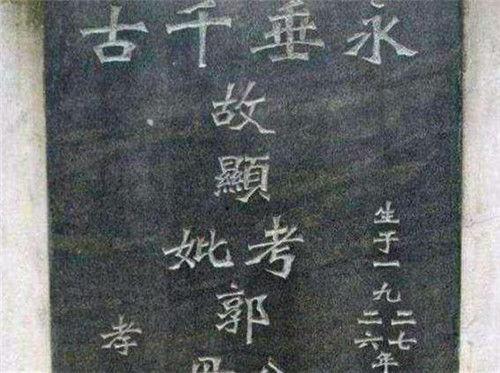 永垂千古
生于一九
二七
二六年
故
顯
考妣
郭
孝